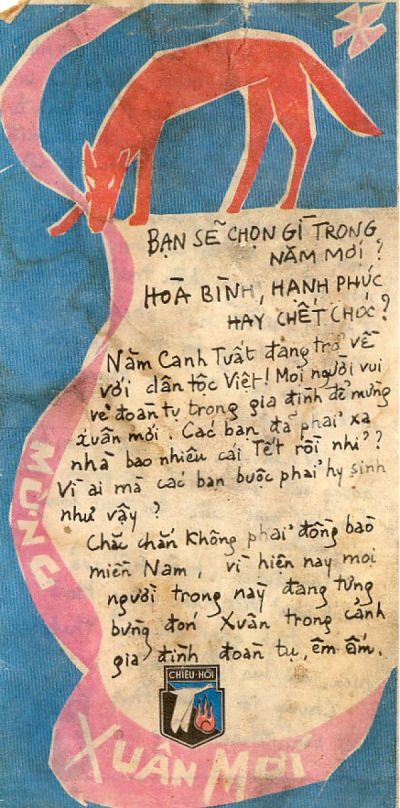 BẠN SẼ CHỌN GÌ TRONG
NĂM MỚI ?
HOÀ BÌNH, HẠNH PHÚC
HAY CHẾT CHÓC ?
Năm Canh Tuất đang trở về
với dân tộc Việt! Mọi người vui
vẻ đoàn tụ trong gia đình để mừng
xuân mới. Các bạn đã phải xa
nhà bao nhiêu cái Tết rồi nhỉ ?
Vì ai mà các bạn buộc phải hy sinh
như vậy ?
Chắc chắn không phải đồng bào
miền Nam, vì hiện nay mọi
người trong này đang tưng
bừng đón Xuân trong cảnh
gia đình đoàn tụ, êm ấm.
CHIÊU-HỒI
MỪNG
XUÂN MỚI